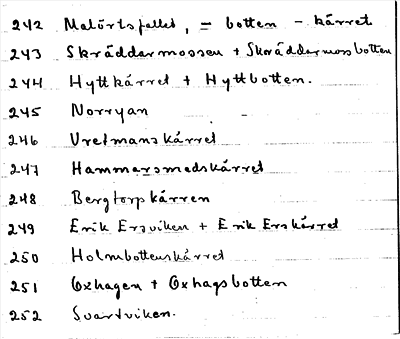 242 Malörtsfallet, – botten – kärret
243 Skräddarmossen + Skräddarmossbotten
244 Hyttkärret + Hyttbotten.
245 Norryan
246 Uretmanskärret
247 Hammarsmedskärret
248 Bergtorpkärren
249 Erik Ersviken + Erik Erskärret
250 Holmbottenskärret
251 Oxhagen + Oxhagsbotten
252 Svartviken.